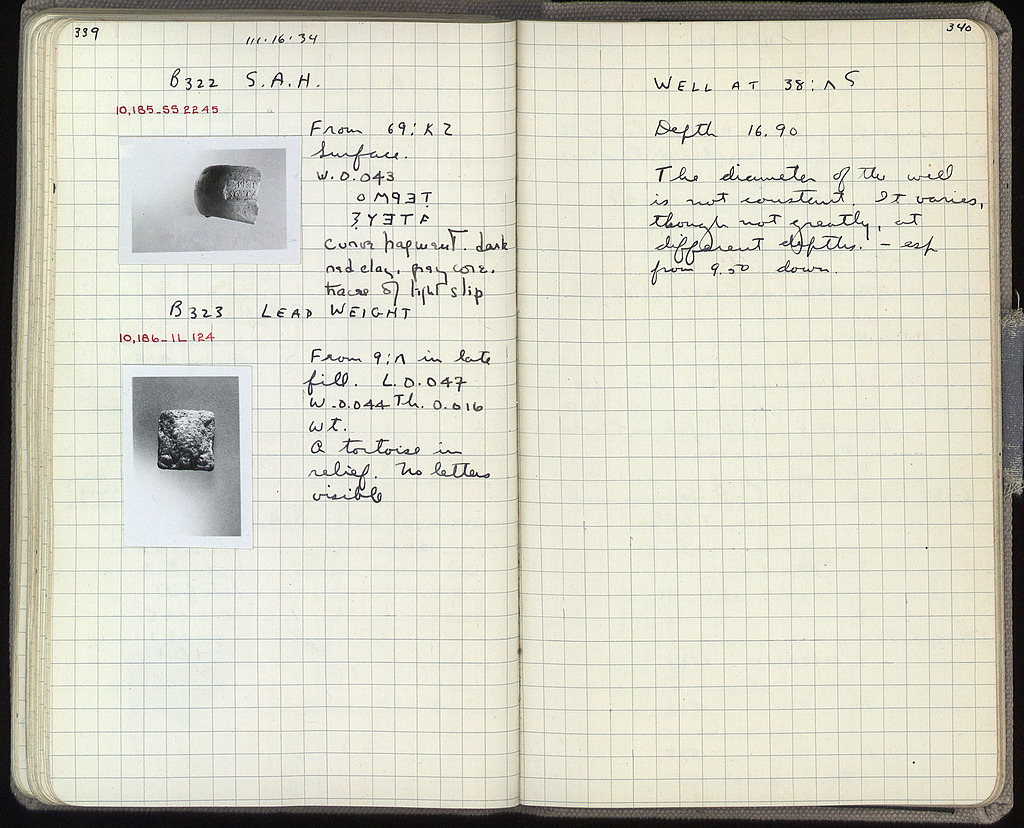 339
111·16·34
B322 S.A.H.
10,185-SS 2245
From 69:KZ
Surface.
W.0.043
curved fragment. dark
red clay, grey core.
trace of light slip
B323 LEAD WEIGHT
10,186-IL 124
From 9:Λ in late
fill. L.0.047
W.0.044 Th. 0.016
wt.
A tortoise in
relief. No letters
visible
340
WELL AT 38:Λ
Depth 16.90
The diameter of the well
is not constant. It varies,
though not greatly, at
different depths. - esp
from 9.50 down.